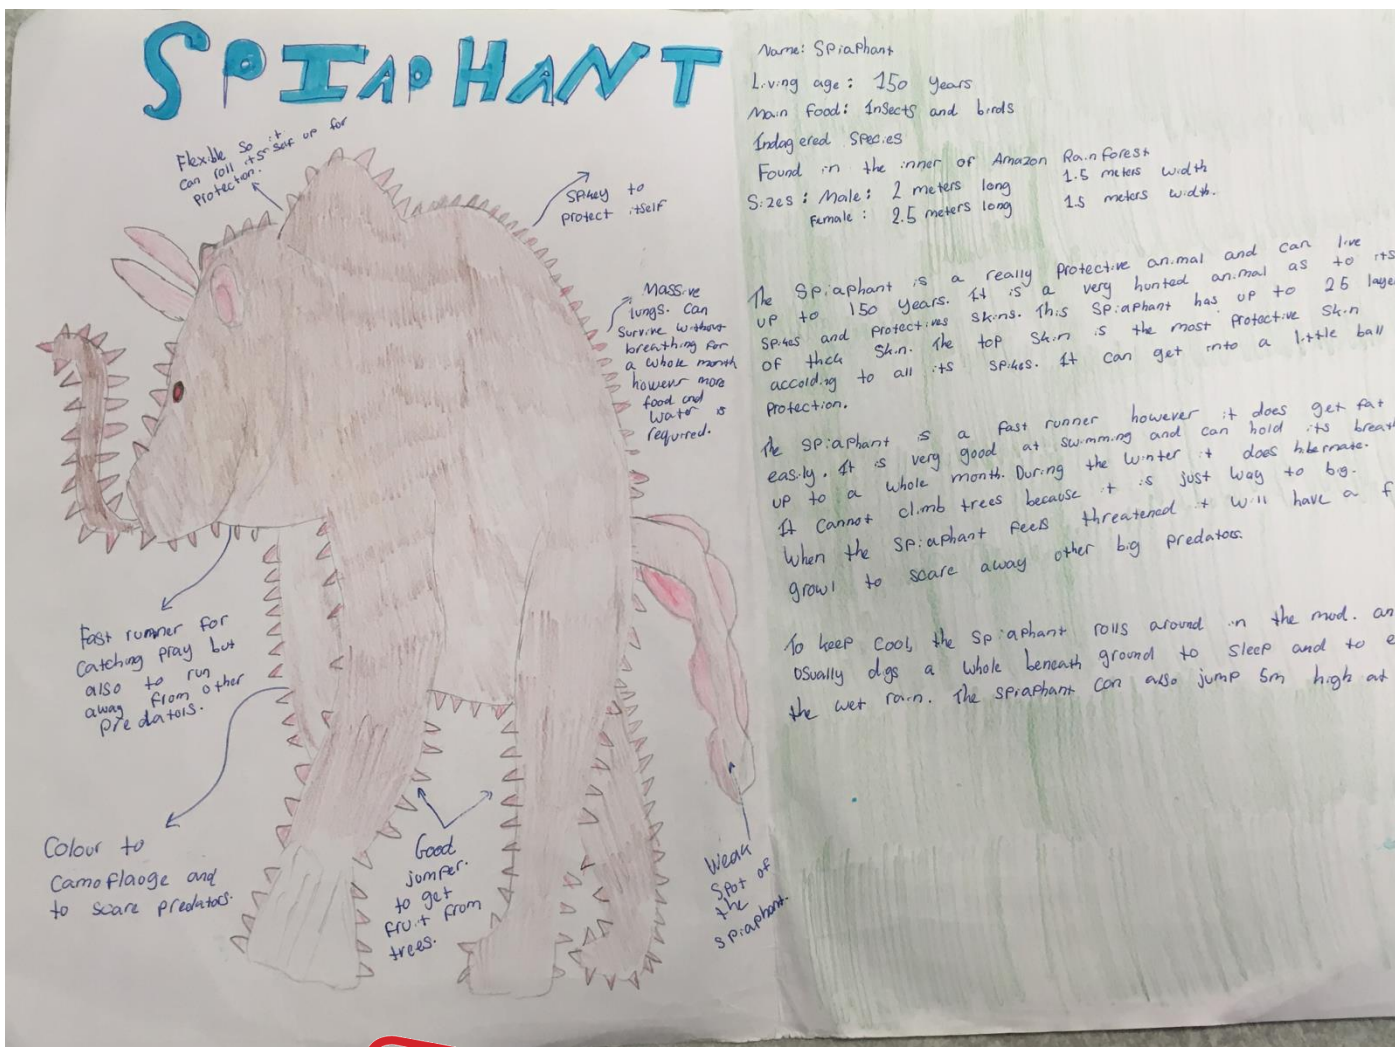 SPIAPHANT
Flexible so it
can roll itsself up for
protection.
Spikey to
protect itself
Massive
lungs. Can
survive without
breathing for
a whole month
however more
food and
water is
required.
Fast runner for
catching pray but
also to run
away from other
predators.
Colour to
camoflaoge and
to scare predators.
Good
jumper.
to get
fruit from
trees.
Weak
spot of
the
spiaphant.
Name: Spiaphant
Living age: 150 years
Main food: Insects and birds
Indagered Species
Found in the inner of Amazon Rainforest
Sizes: Male: 2 meters long 1.5 meters width
Female: 2.5 meters long 1.5 meters width.
The Spiaphant is a really protective animal and can live
up to 150 years. It is a very hunted animal as to its
spikes and protectives skins. This Spiaphant has up to 25 laye
of thck skin. The top skin is the most protective skin
accolding to all its spikes. It can get into a little ball
protection.
The spiaphant is a fast runner however it does get fat
easily. It is very good at swimming and can hold its breat
up to a whole month. During the winter it does hibernate.
It cannot climb trees because it is just way to big.
When the spiaphant feels threatened it will have a f
growl to scare away other big predators.
To keep cool, the spiaphant rolls around in the mud. an
usually digs a whole beneath ground to sleep and to e
the wet rain. The spiaphant can also jump 5m high at